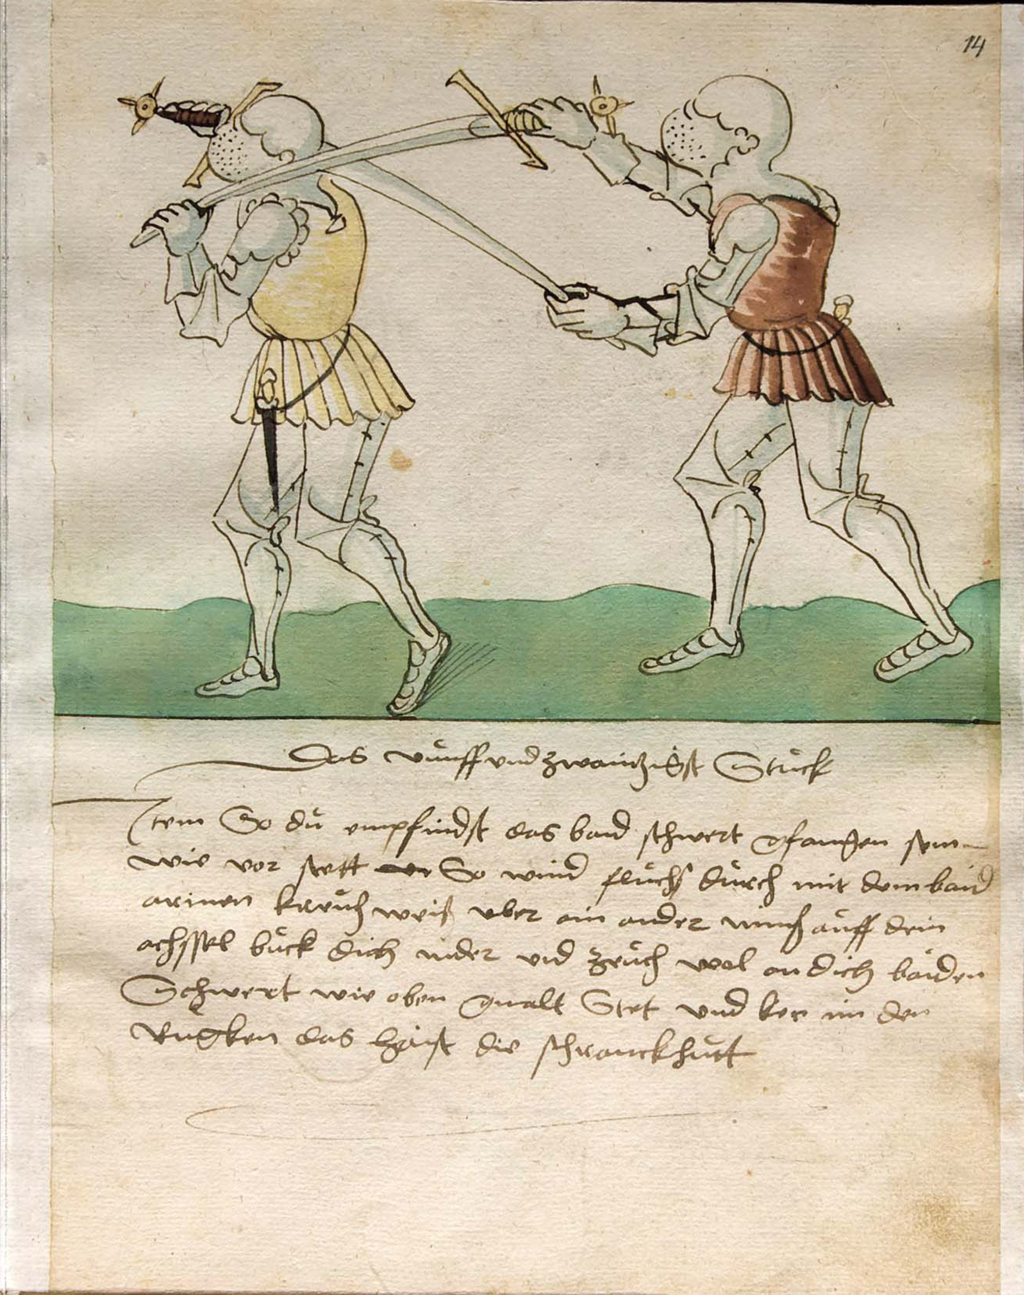 14
Das vünff und zwaintzigist Stuck
Item So dú empfindst das baid schwert gfangen sein
wie vor stett So wind fluchs dúrch mit dem baid
armen kreútz weiß uber ain ander nims aúff dein
achssel búck dich nider und zeúch wol an dich baiden
Schwert wie oben gmalt Stet und ker im den
Rugken das haist die schranckhút